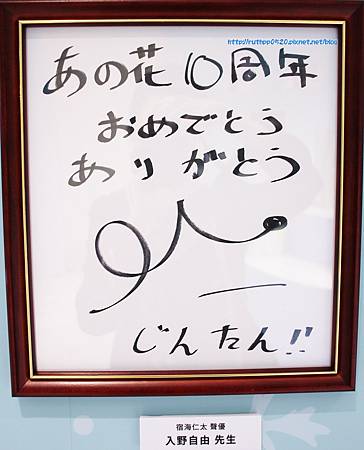 http://ruthpp0520.pixnet.net/blog
あの花10周年
おめでとう
ありがとう
じんたん!!
宿海仁太 聲優
入野自由 先生